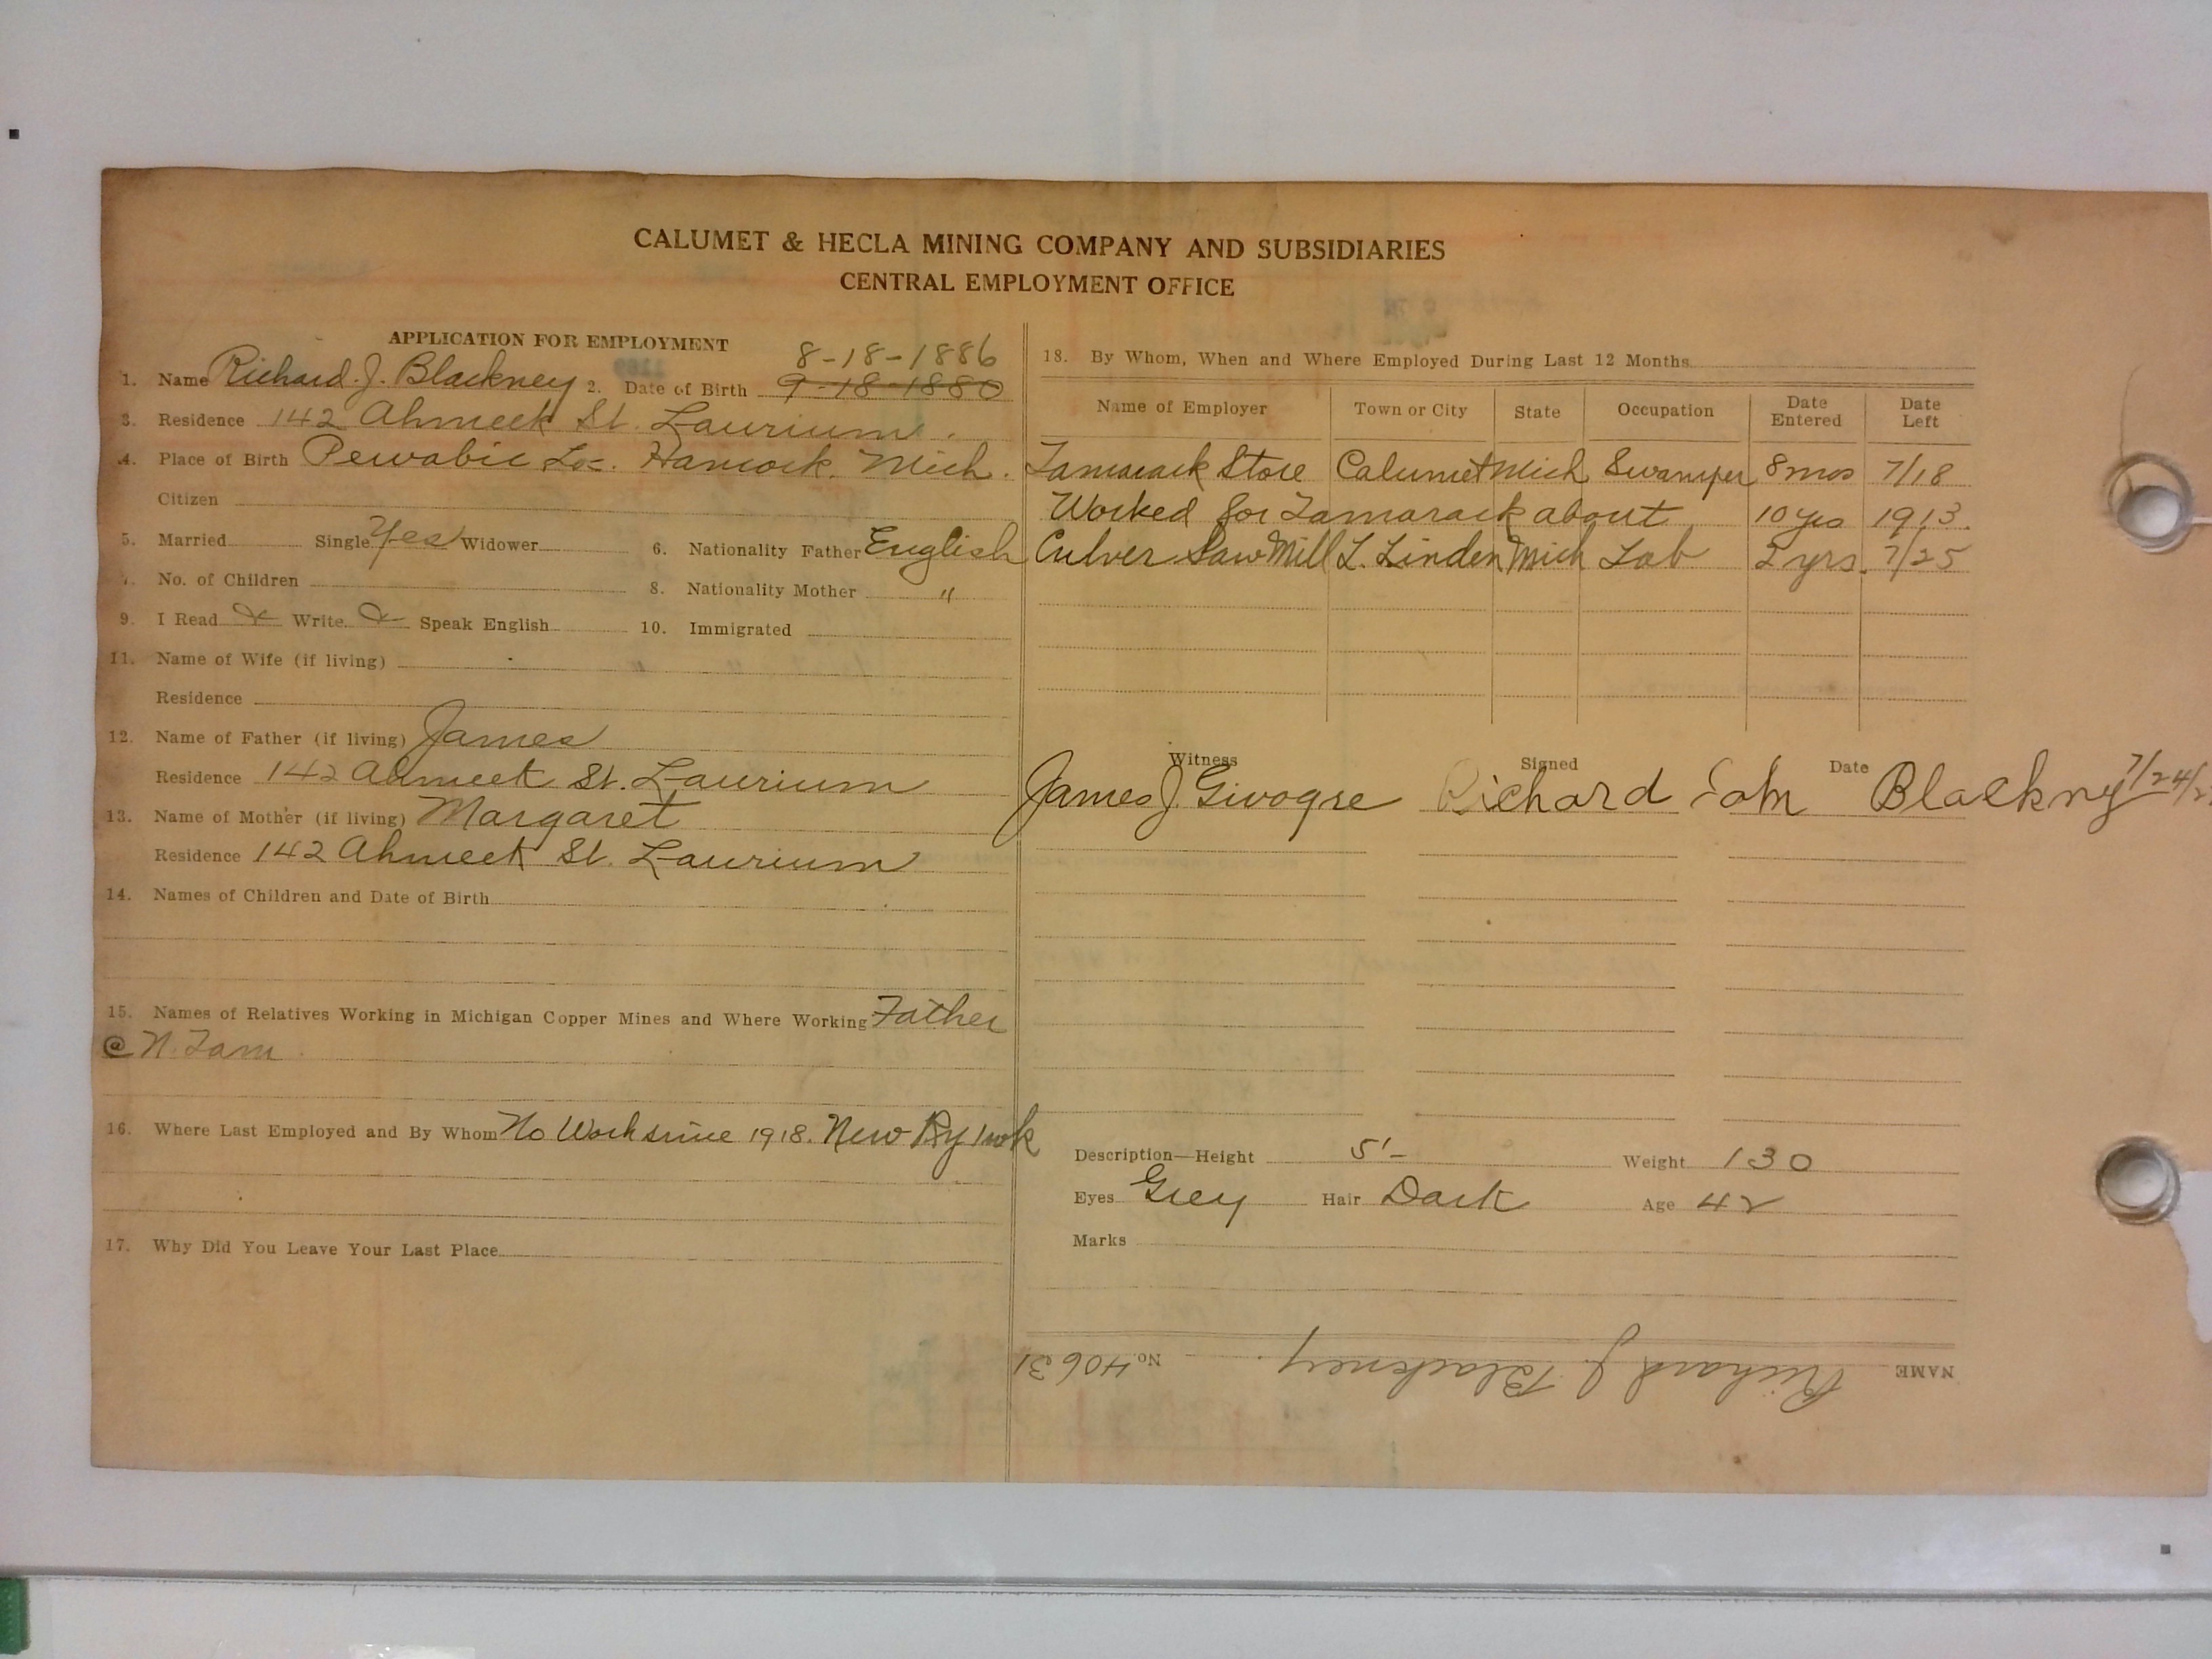 CALUMET & HECLA MINING COMPANY AND SUBSIDIARIES
CENTRAL EMPLOYMENT OFFICE
APPLICATION FOR EMPLOYMENT
8-18-1886
1. Name Richard. J. Blackney 2. Date of Birth 9-18-1880
3. Residence 142 Ahmeek St. Laurium.
4. Place of Birth Pewabic Loc. Hancock. Mich.
Citizen
5. Married Single Yes Widower 6. Nationality Father English
7. No. of Children 8. Nationality Mother "
9. I Read & Write & Speak English 10. Immigrated
11. Name of Wife (if living)
Residence
12. Name of Father (if living) James
Residence 142 Ahmeek St. Laurium
13. Name of Mother (if living) Margaret
Residence 142 Ahmeek St. Laurium
14. Names of Children and Date of Birth
15. Names of Relatives Working in Michigan Copper Mines and Where Working Father
@ N. Tam
16. Where Last Employed and By Whom No Work since 1918. New Ry 1wk
17. Why Did You Leave Your Last Place
18. By Whom, When and Where Employed During Last 12 Months
Name of Employer Town or City State Occupation Date Entered Date Left
Tamarack Store Calumet Mich Swamper 8mos 7/18
Worked for Tamarack about 10 yrs 1913.
Culver Saw Mill L. Linden Mich Lab 2 yrs. 7/25
Witness Signed Date
James J. Richard John Blackny 7/24/2
Description—Height 5'- Weight 130
Eyes Grey Hair Dark Age 42
Marks
NAME Richard J. Blackney. No. 40631